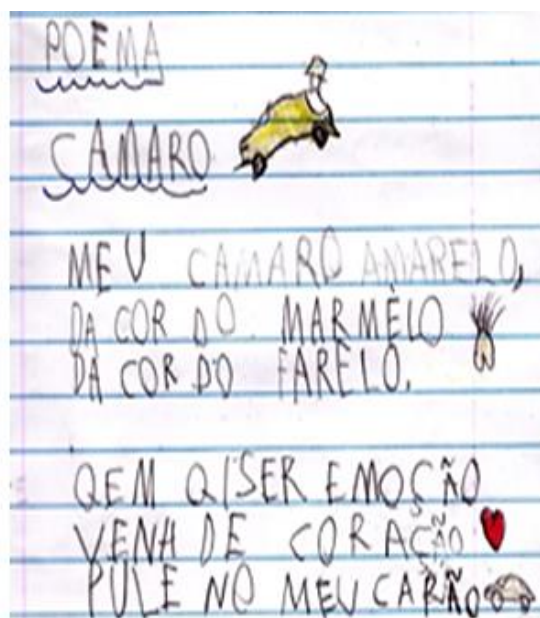 POEMA
CAMARO
MEU CAMARO AMARELO,
DA COR DO MARMÉLO
DA COR DO FARÉLO.
QEM QISER EMOÇÃO
VENH DE CORAÇÃO
PULE NO MEU CARÃO